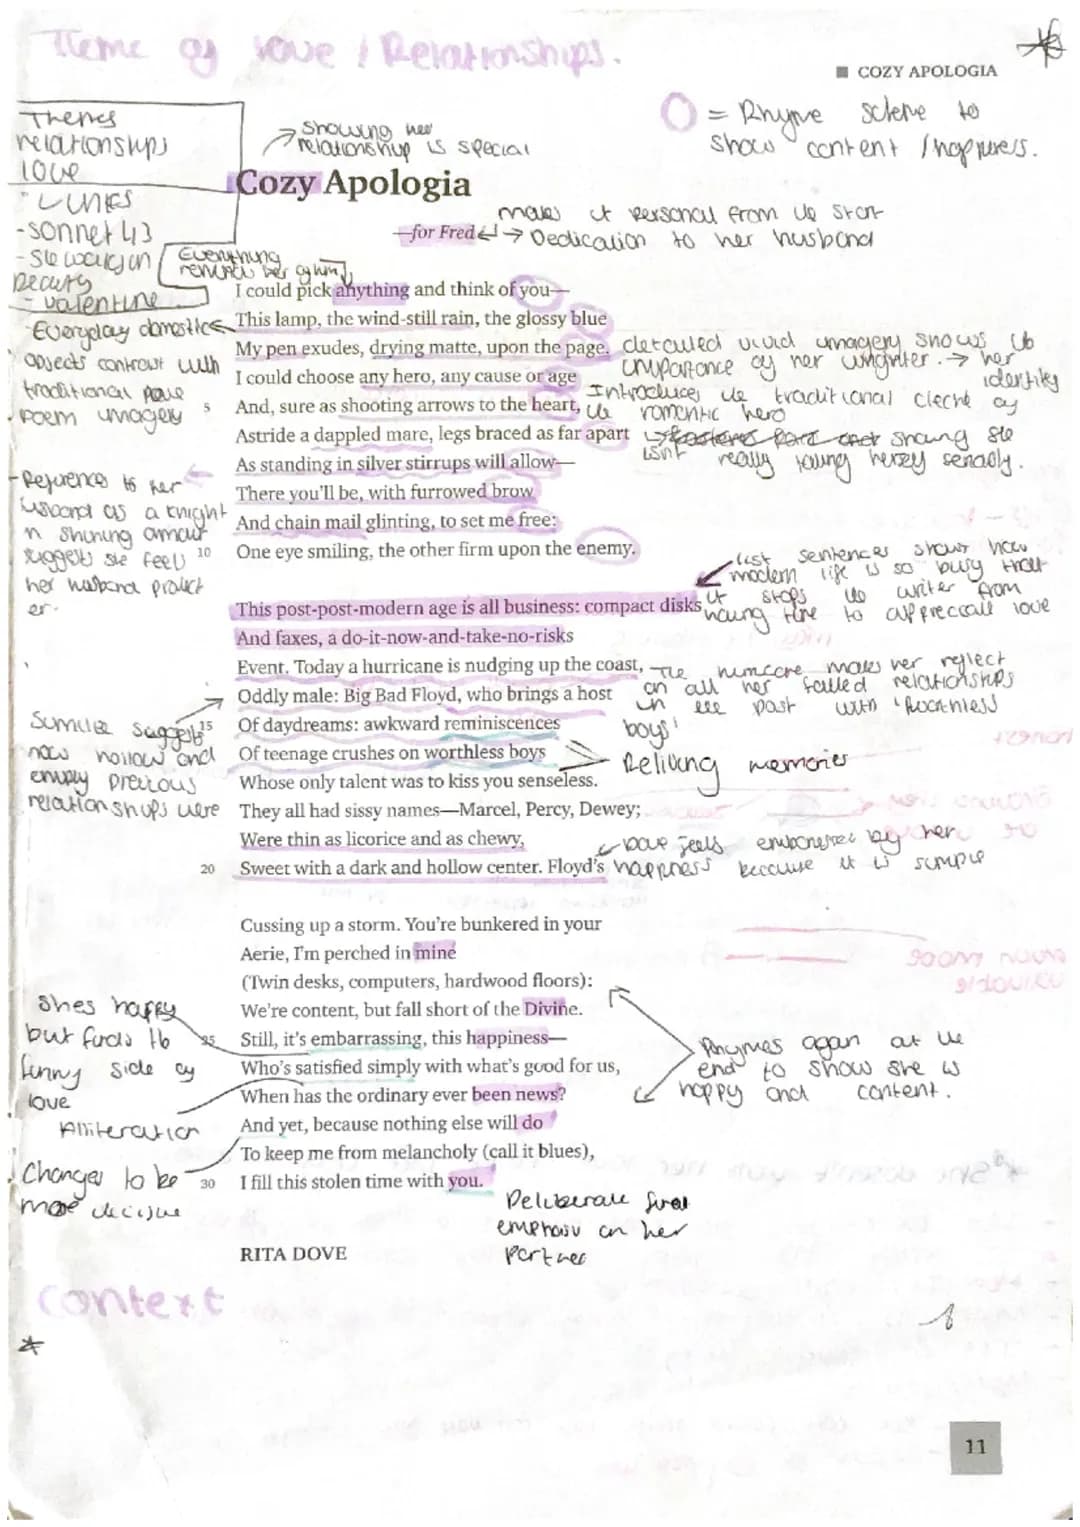 Theme of love / Relationships.
■ COZY APOLOGIA
Themes
relationships
love
LINKS
- sonnet 43
- She walks in
Beauty
- valentine
Showing her
relationship is special
= Rhyme scheme to
show content / happiness.
Cozy Apologia
makes it personal from the start
—for Fred
→ Dedication to her husband
Everything
reminds her of him
I could pick anything and think of you—
This lamp, the wind-still rain, the glossy blue
My pen exudes, drying matte, upon the page.
I could choose any hero, any cause or age
5 And, sure as shooting arrows to the heart,
Astride a dappled mare, legs braced as far apart
As standing in silver stirrups will allow—
There you'll be, with furrowed brow
And chain mail glinting, to set me free:
10 One eye smiling, the other firm upon the enemy.
Everyday domestic
objects contrast with
traditional love
poem imagery
detailed vivid imagery shows the
importance of her → her
identity
Introduces the traditional cleché of
the romantic hero
showing she
isnt really taking herself
- Reference to her
husband as a knight
in shining amour
suggests she feels
her husband protect
er.
list sentences show how
modern life is so busy that
it stops the writer from
having time to appreciate love
This post-post-modern age is all business: compact disks
And faxes, a do-it-now-and-take-no-risks
Event. Today a hurricane is nudging up the coast,
Oddly male: Big Bad Floyd, who brings a host
15 Of daydreams: awkward reminiscences
Of teenage crushes on worthless boys
Whose only talent was to kiss you senseless.
They all had sissy names—Marcel, Percy, Dewey;
Were thin as licorice and as chewy,
20 Sweet with a dark and hollow center. Floyd's
The makes her reflect
on all her failed relationships
in the past with
boys'
Reliving memories
suggests
how hollow and
empty previous
relationships were
Dove feels by her
happiness because it is simple
Cussing up a storm. You're bunkered in your
Aerie, I'm perched in mine
(Twin desks, computers, hardwood floors):
We're content, but fall short of the Divine.
25 Still, it's embarrassing, this happiness—
Who's satisfied simply with what's good for us,
When has the ordinary ever been news?
And yet, because nothing else will do
To keep me from melancholy (call it blues),
30 I fill this stolen time with you.
Shes happy
but finds the
funny side of
love
Alliteration
Changes to be
more decisive
Rhymes again at the
end to show she is
happy and content.
Deliberate final
emphasis on her
partner
RITA DOVE
Context
11